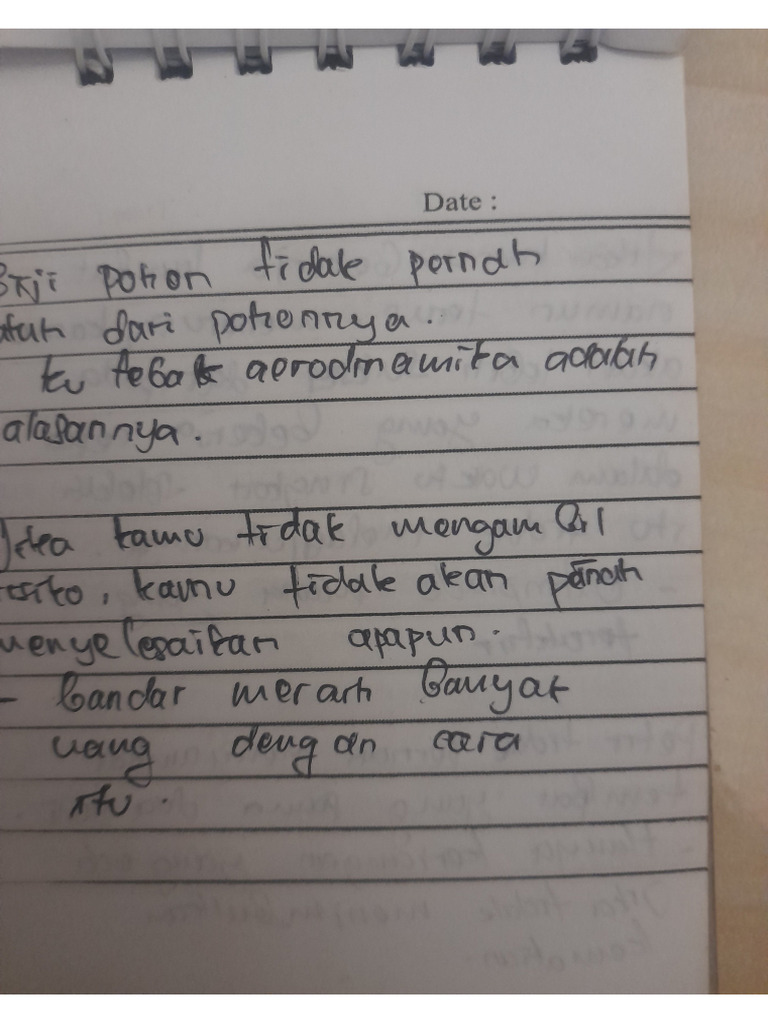 Date :
Biji pohon tidak pernah
atuh dari pohonnya.
ku tebak aerodinamika adalah
alasannya.
Jika kamu tidak mengambil
resiko, kamu tidak akan pernah
menyelesaikan apapun.
- bandar meraih banyak
uang dengan cara
itu.